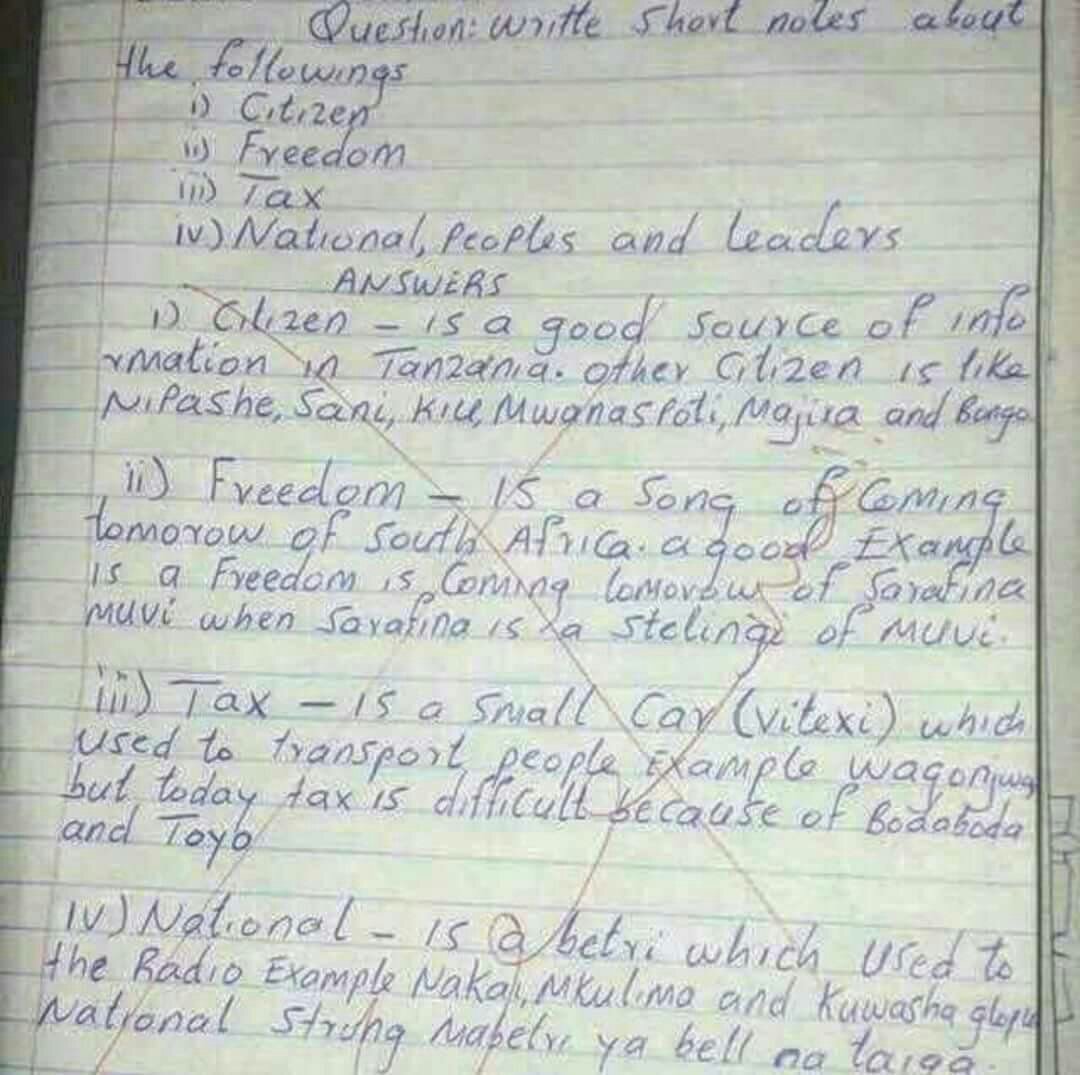 Question: writte short notes about
the followings
i) Citizen
ii) Freedom
iii) Tax
iv) National, Peoples and leaders
ANSWERS
i) Citizen - is a good source of info
rmation in Tanzania. other Citizen is like
Nipashe, Sani, Kiu, Mwanaspoti, Majira and Bongo
ii) Freedom - is a song of Coming
tomorow of South Africa. a good Example
is a Freedom is Coming tomorow of Sarafina
muvi when Sarafina is a stelingi of muvi.
iii) Tax - is a small Car (vitexi) which
used to transport people Example wagonjwa
but today tax is difficult because of Bodaboda
and Toyo
iv) National - is a betri which used to
the Radio Example Nakai, Mkulima and Kuwasha glopu
National strong Mabetri ya bell na taiga.